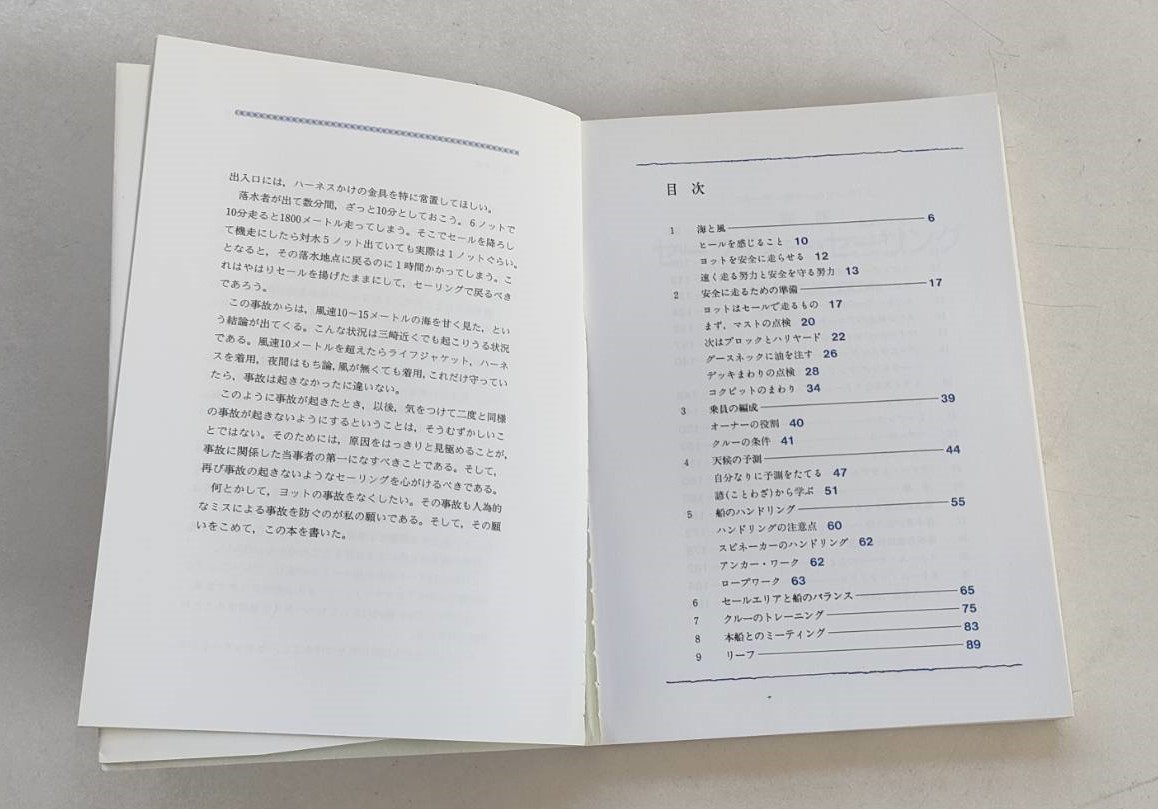 出入口には，ハーネスかけの金具を特に常置してほしい。
落水者が出て数分間，ざっと10分としておこう。6ノットで
10分走ると1800メートル走ってしまう。そこでセールを降ろし
て機走にしたら対水5ノット出ていても実際は1ノットぐらい。
となると，その落水地点に戻るのに1時間かかってしまう。こ
れはやはりセールを揚げたままにして，セーリングで戻るべき
であろう。
この事故からは，風速10〜15メートルの海を甘く見た，とい
う結論が出てくる。こんな状況は三崎近くでも起こりうる状況
である。風速10メートルを超えたらライフジャケット，ハーネ
スを着用，夜間はもち論，風が無くても着用，これだけ守ってい
たら，事故は起きなかったに違いない。
このように事故が起きたとき，以後，気をつけて二度と同様
の事故が起きないようにするということは，そうむずかしいこ
とではない。そのためには，原因をはっきりと見極めることが，
事故に関係した当事者の第一になすべきことである。そして，
再び事故の起きないようなセーリングを心がけるべきである。
何とかして，ヨットの事故をなくしたい。その事故も人為的
なミスによる事故を防ぐのが私の願いである。そして，その願
いをこめて，この本を書いた。
目 次
1 海と風 6
ヒールを感じること 10
ヨットを安全に走らせる 12
速く走る努力と安全を守る努力 13
2 安全に走るための準備 17
ヨットはセールで走るもの 17
まず，マストの点検 20
次はブロックとハリヤード 22
グースネックに油を注す 26
デッキまわりの点検 28
コクピットのまわり 34
3 乗員の編成 39
オーナーの役割 40
クルーの条件 41
4 天候の予測 44
自分なりに予測をたてる 47
諺(ことわざ)から学ぶ 51
5 船のハンドリング 55
ハンドリングの注意点 60
スピネーカーのハンドリング 62
アンカー・ワーク 62
ロープワーク 63
6 セールエリアと船のバランス 65
7 クルーのトレーニング 75
8 本船とのミーティング 83
9 リーフ 89